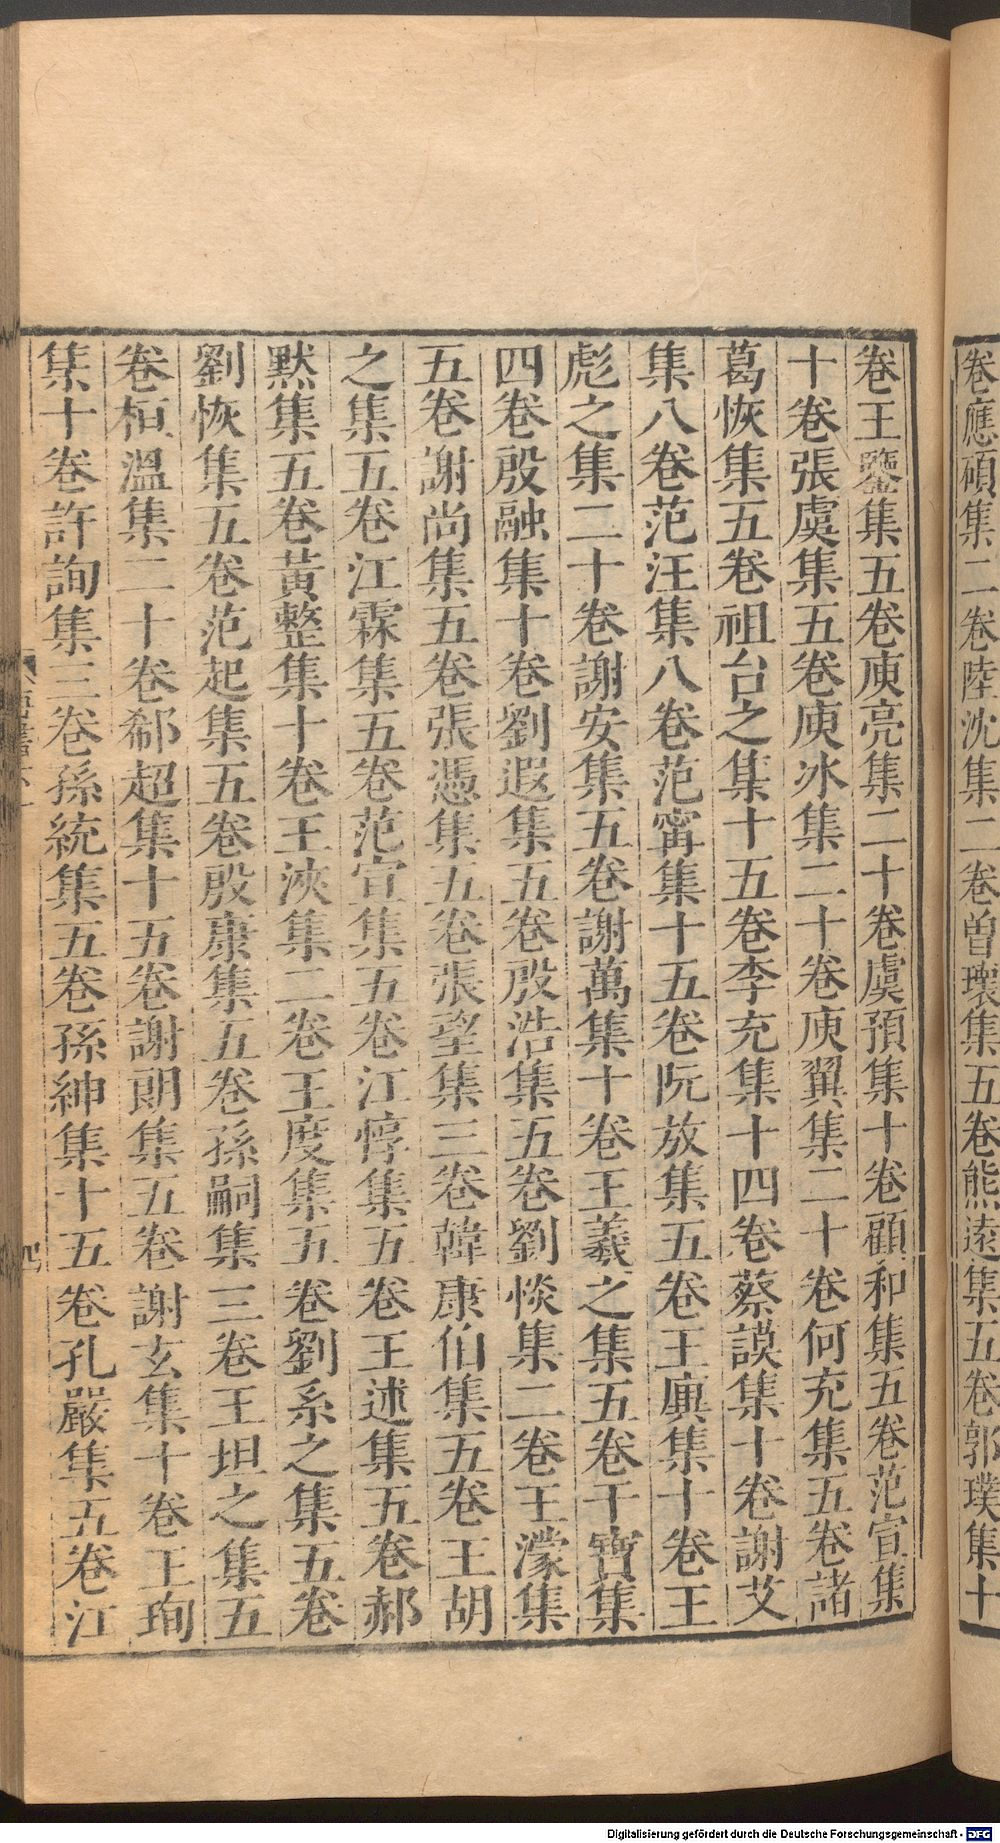 卷應碩集二卷陸沈集二卷曽瓌集五卷熊遠集五卷郭璞集十
卷王鑒集五卷庾亮集二十卷虞預集十卷顧和集五卷范宣集
十卷張虞集五卷庾冰集二十卷庾翼集二十卷何充集五卷諸
葛恢集五卷祖台之集十五卷李充集十四卷蔡謨集十卷謝艾
集八卷范汪集八卷范甯集十五卷阮放集五卷王廙集十卷王
彪之集二十卷謝安集五卷謝萬集十卷王羲之集五卷干寶集
四卷殷融集十卷劉遐集五卷殷浩集五卷劉惔集二卷王濛集
五卷謝尚集五卷張憑集五卷張望集三卷韓康伯集五卷王胡
之集五卷江霖集五卷范宣集五卷江惇集五卷王述集五卷郝
默集五卷黃整集十卷王浹集二卷王度集五卷劉系之集五卷
劉恢集五卷范起集五卷殷康集五卷孫嗣集三卷王坦之集五
卷桓溫集二十卷郗超集十五卷謝朗集五卷謝玄集十卷王珣
集十卷許詢集三卷孫統集五卷孫紳集十五卷孔嚴集五卷江
四
Digitalisierung gefördert durch die Deutsche Forschungsgemeinschaft - DFG